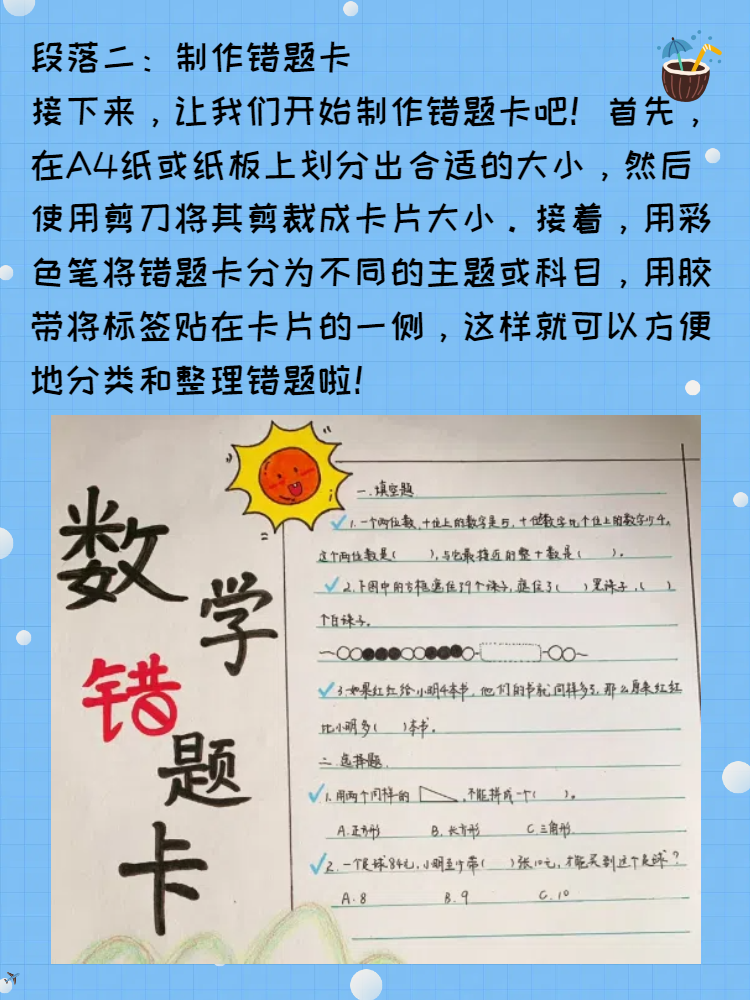 段落二：制作错题卡
接下来，让我们开始制作错题卡吧！首先，
在A4纸或纸板上划分出合适的大小，然后
使用剪刀将其剪裁成卡片大小。接着，用彩
色笔将错题卡分为不同的主题或科目，用胶
带将标签贴在卡片的一侧，这样就可以方便
地分类和整理错题啦！
数
学
错
题
卡
一.填空题
1.一个两位数，十位上的数字是5，十位数字比个位上的数字少4。
这个两位数是(    )，与它最接近的整十数是(    )。
2.下图中的方框遮住了9个珠子，遮住了(    )黑珠子，(    )
个白珠子。
3.如果红红给小明4本书，他们的书就同样多了，那么原来红红
比小明多(    )本书。
二.选择题
1.用两个同样的 ，不能拼成一个(    )。
A.正方形 B.长方形 C.三角形
2.一个足球84元，小明至少带(    )张10元，才能买到这个足球？
A.8 B.9 C.10